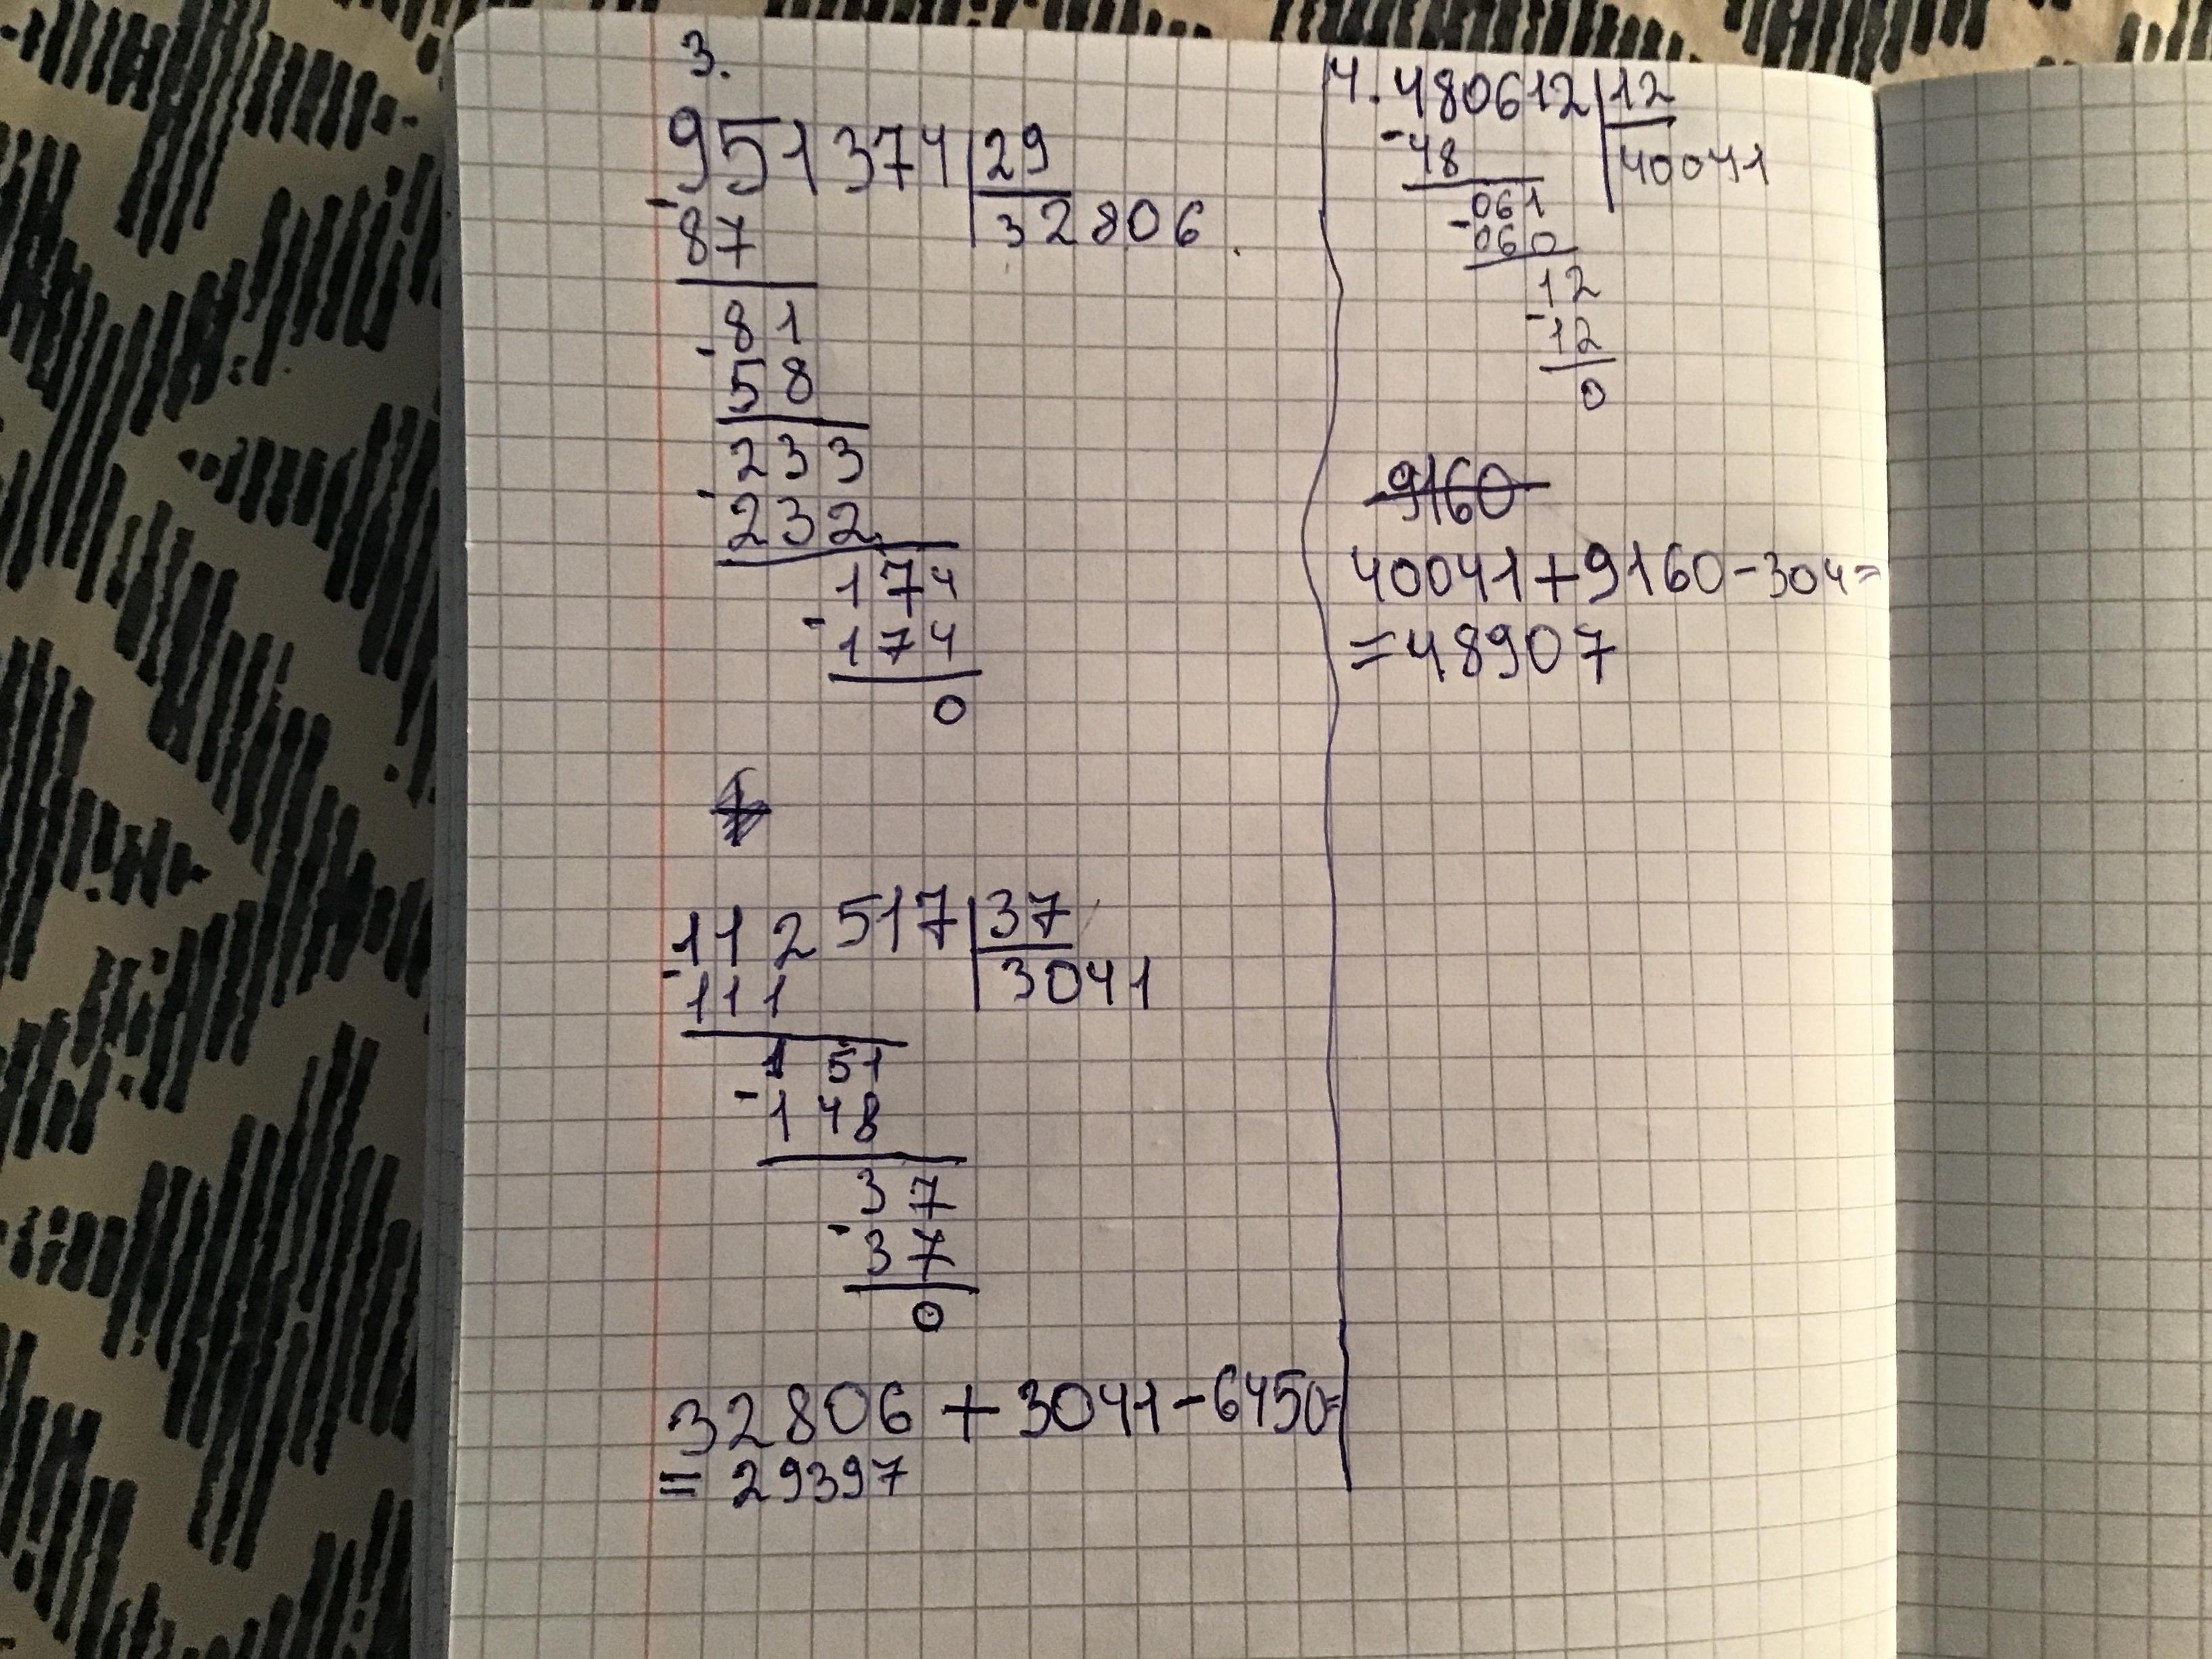 3.
951374 29
- 87 32806
- 81
58
233
- 232
174
- 174
0
112517 37
- 111 3041
151
- 148
37
- 37
0
32806 + 3041 - 6450=
= 29397
4. 480612 12
- 48 40041
061
- 060
12
- 12
0
9160
40041+9160-304=
=48907